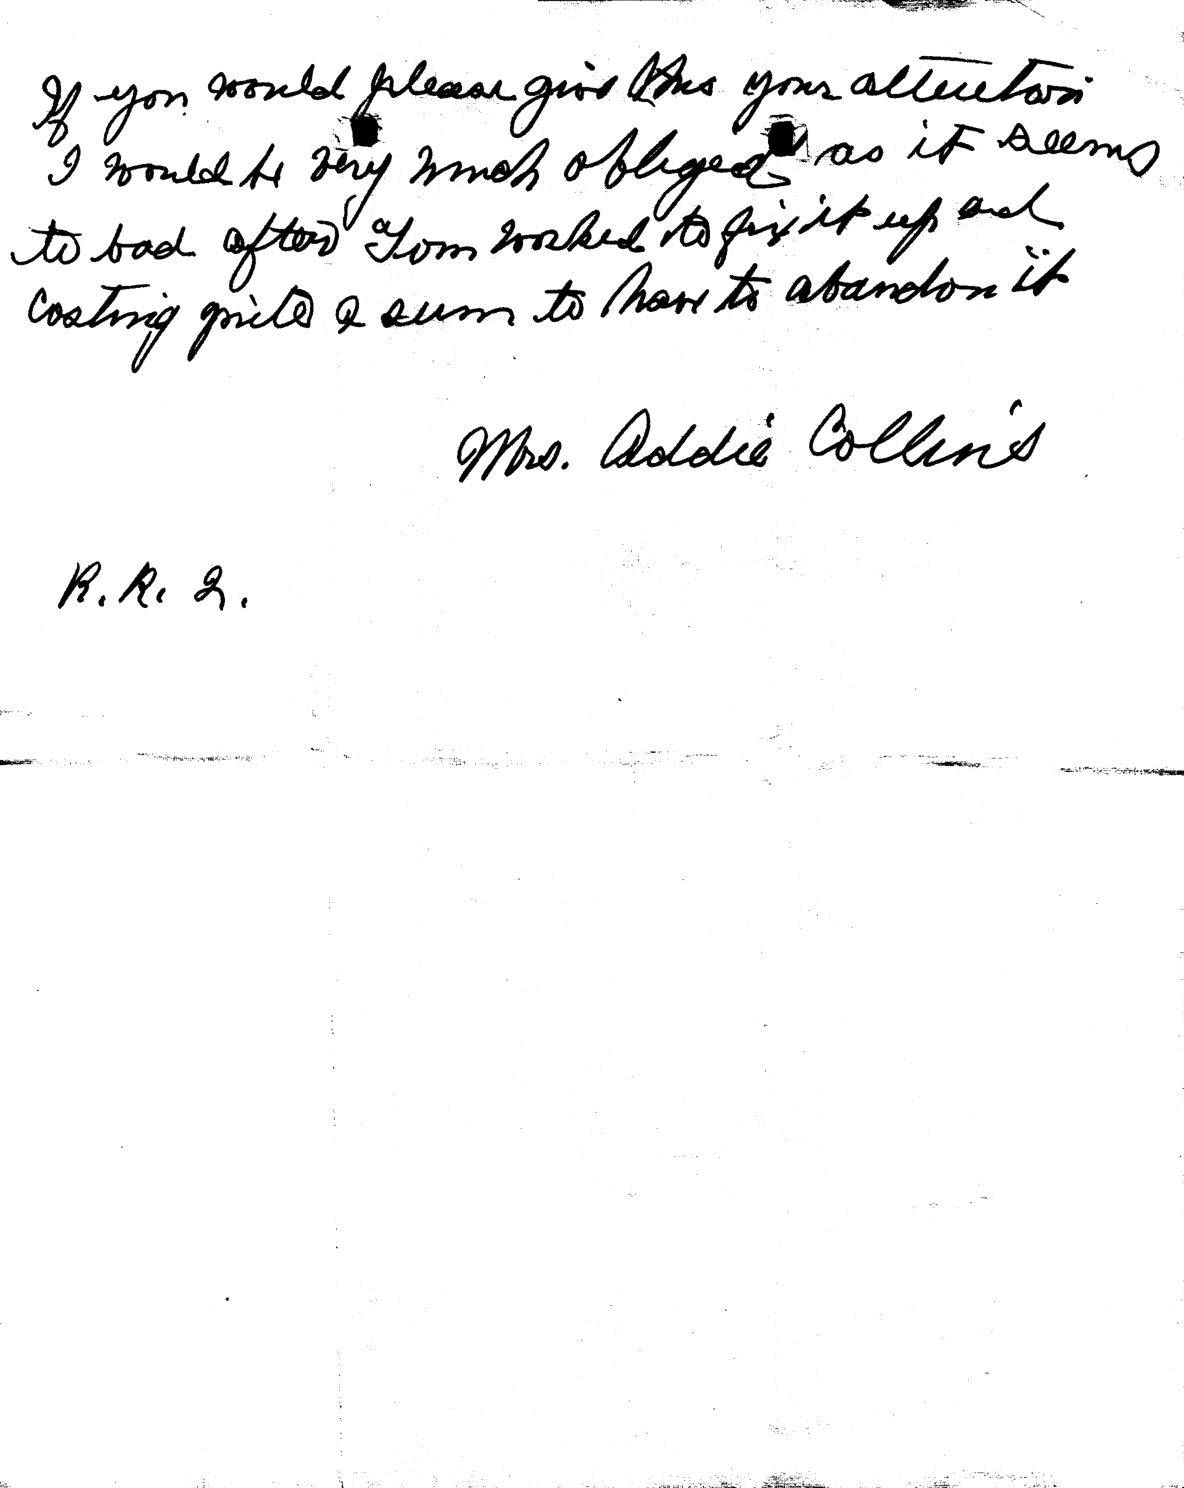 If you would please give this your attention
I would be very much obliged as it seems
to bad after Tom worked to fix it up and
costing quite a sum to have to abandon it
Mrs. Addie Collins
R.R. 2.